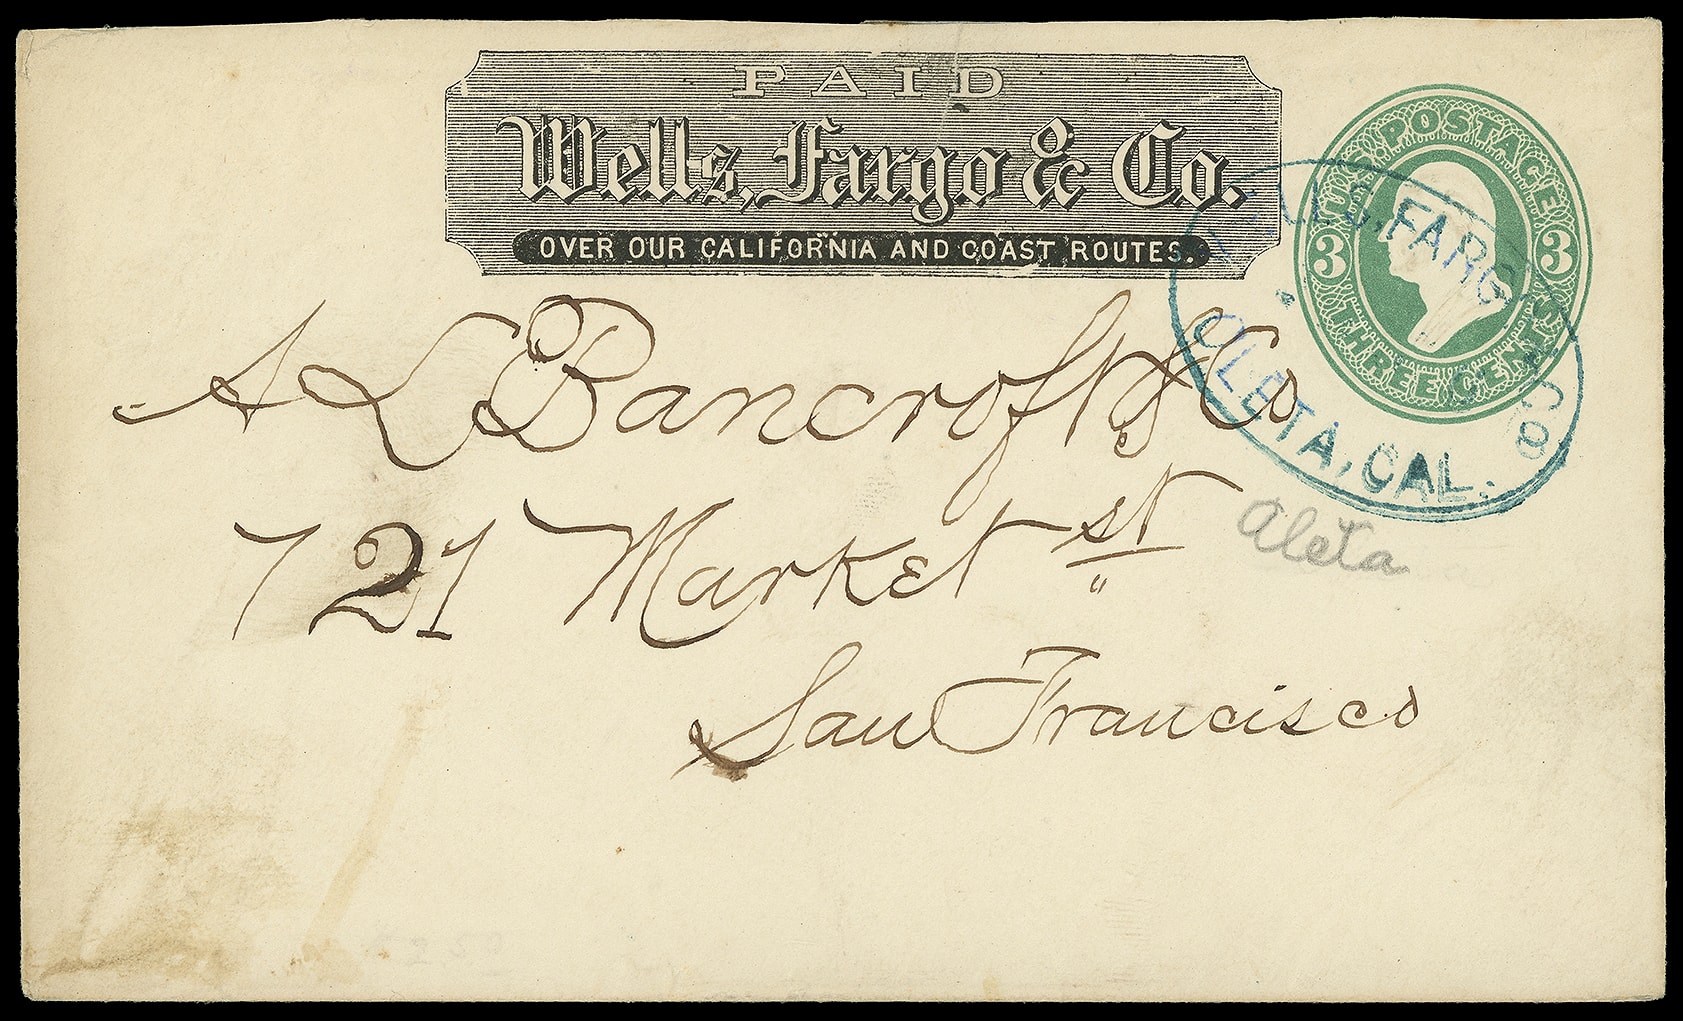 PAID
Wells, Fargo & Co.
OVER OUR CALIFORNIA AND COAST ROUTES.
U.S. POSTAGE
3 3
THREE CENTS
WELLS, FARGO & CO.
OLETA, CAL.
A L Bancroft & Co
721 Market st
Aleta
San Francisco